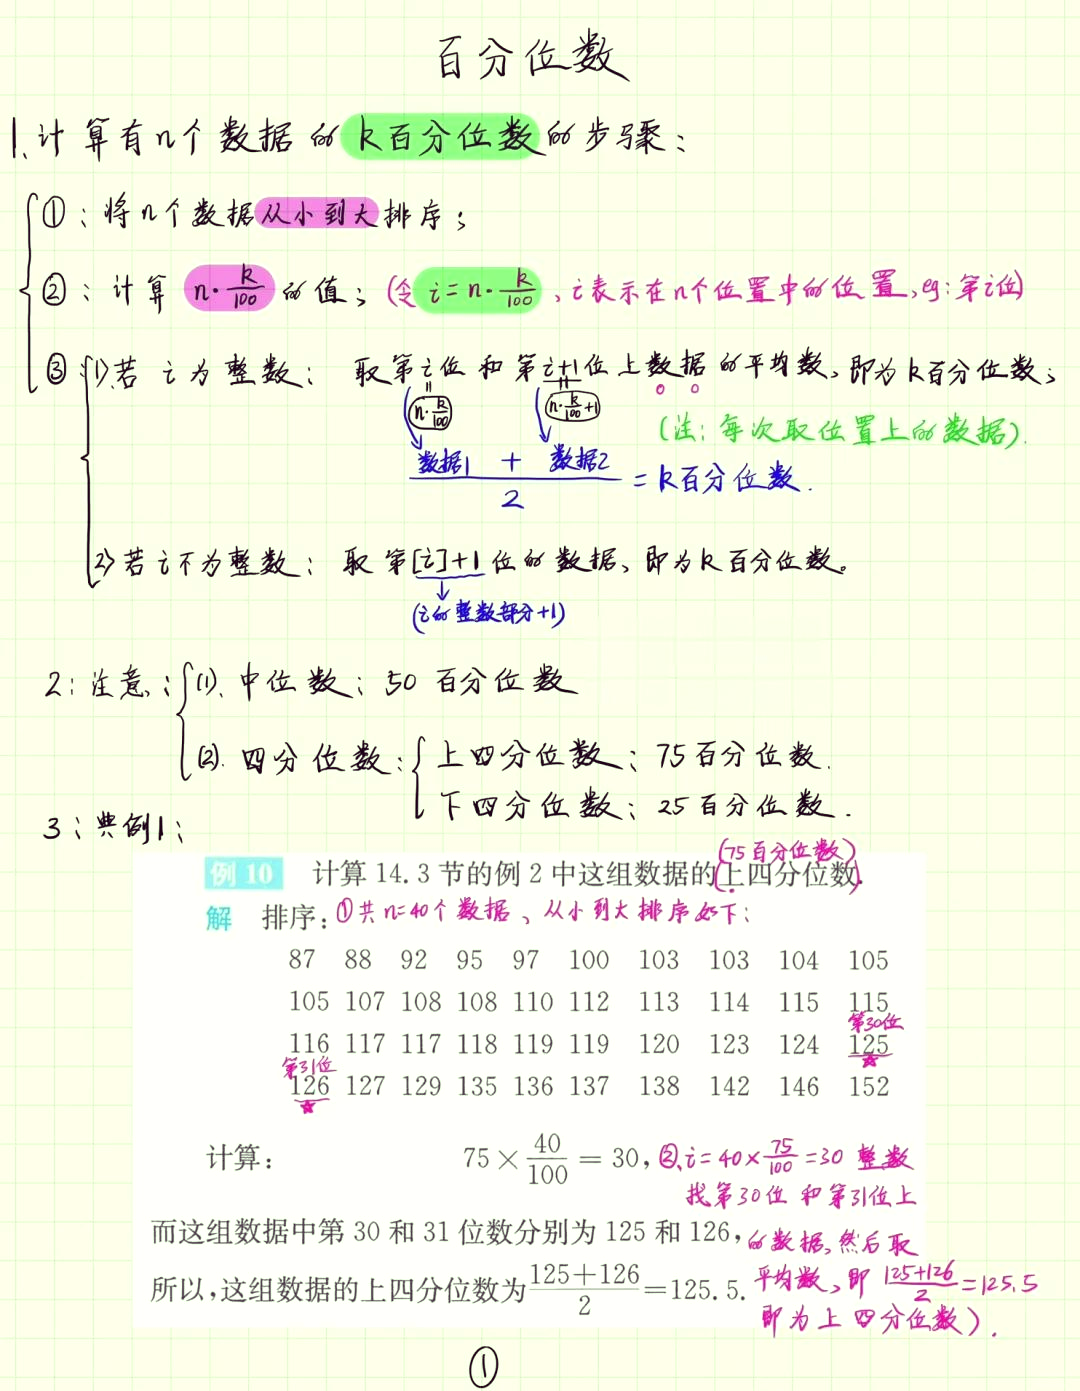 百分位数
1、计算有n个数据的k百分位数的步骤：
①：将n个数据从小到大排序；
②：计算 n·k/100 的值；(令 i=n·k/100，i表示在n个位置中的位置,eg:第i位)
③ (1)、若 i 为整数： 取第i位和第i+1位上数据的平均数、即为k百分位数；
n·k/100 n·k/100+1 (注：每次取位置上的数据).
(数据1 + 数据2)/2 = k百分位数.
(2) 若i不为整数： 取第[i]+1位的数据、即为k百分位数。
(i的整数部分+1)
2：注意：(1)、中位数：50百分位数
(2). 四分位数：上四分位数：75百分位数.
下四分位数：25百分位数.
3：典例1：
(75百分位数)
例10 计算14.3节的例2中这组数据的(上四分位数).
解 排序：①共n=40个数据、从小到大排序如下：
87 88 92 95 97 100 103 103 104 105
105 107 108 108 110 112 113 114 115 115
第30位
116 117 117 118 119 119 120 123 124 125
第31位
126 127 129 135 136 137 138 142 146 152
计算： 75×40/100=30，②、i=40×75/100=30 整数
找第30位和第31位上
而这组数据中第30和31位数分别为125和126，的数据,然后取
所以，这组数据的上四分位数为(125+126)/2=125.5. 平均数、即 (125+126)/2=125.5
即为上四分位数).
①